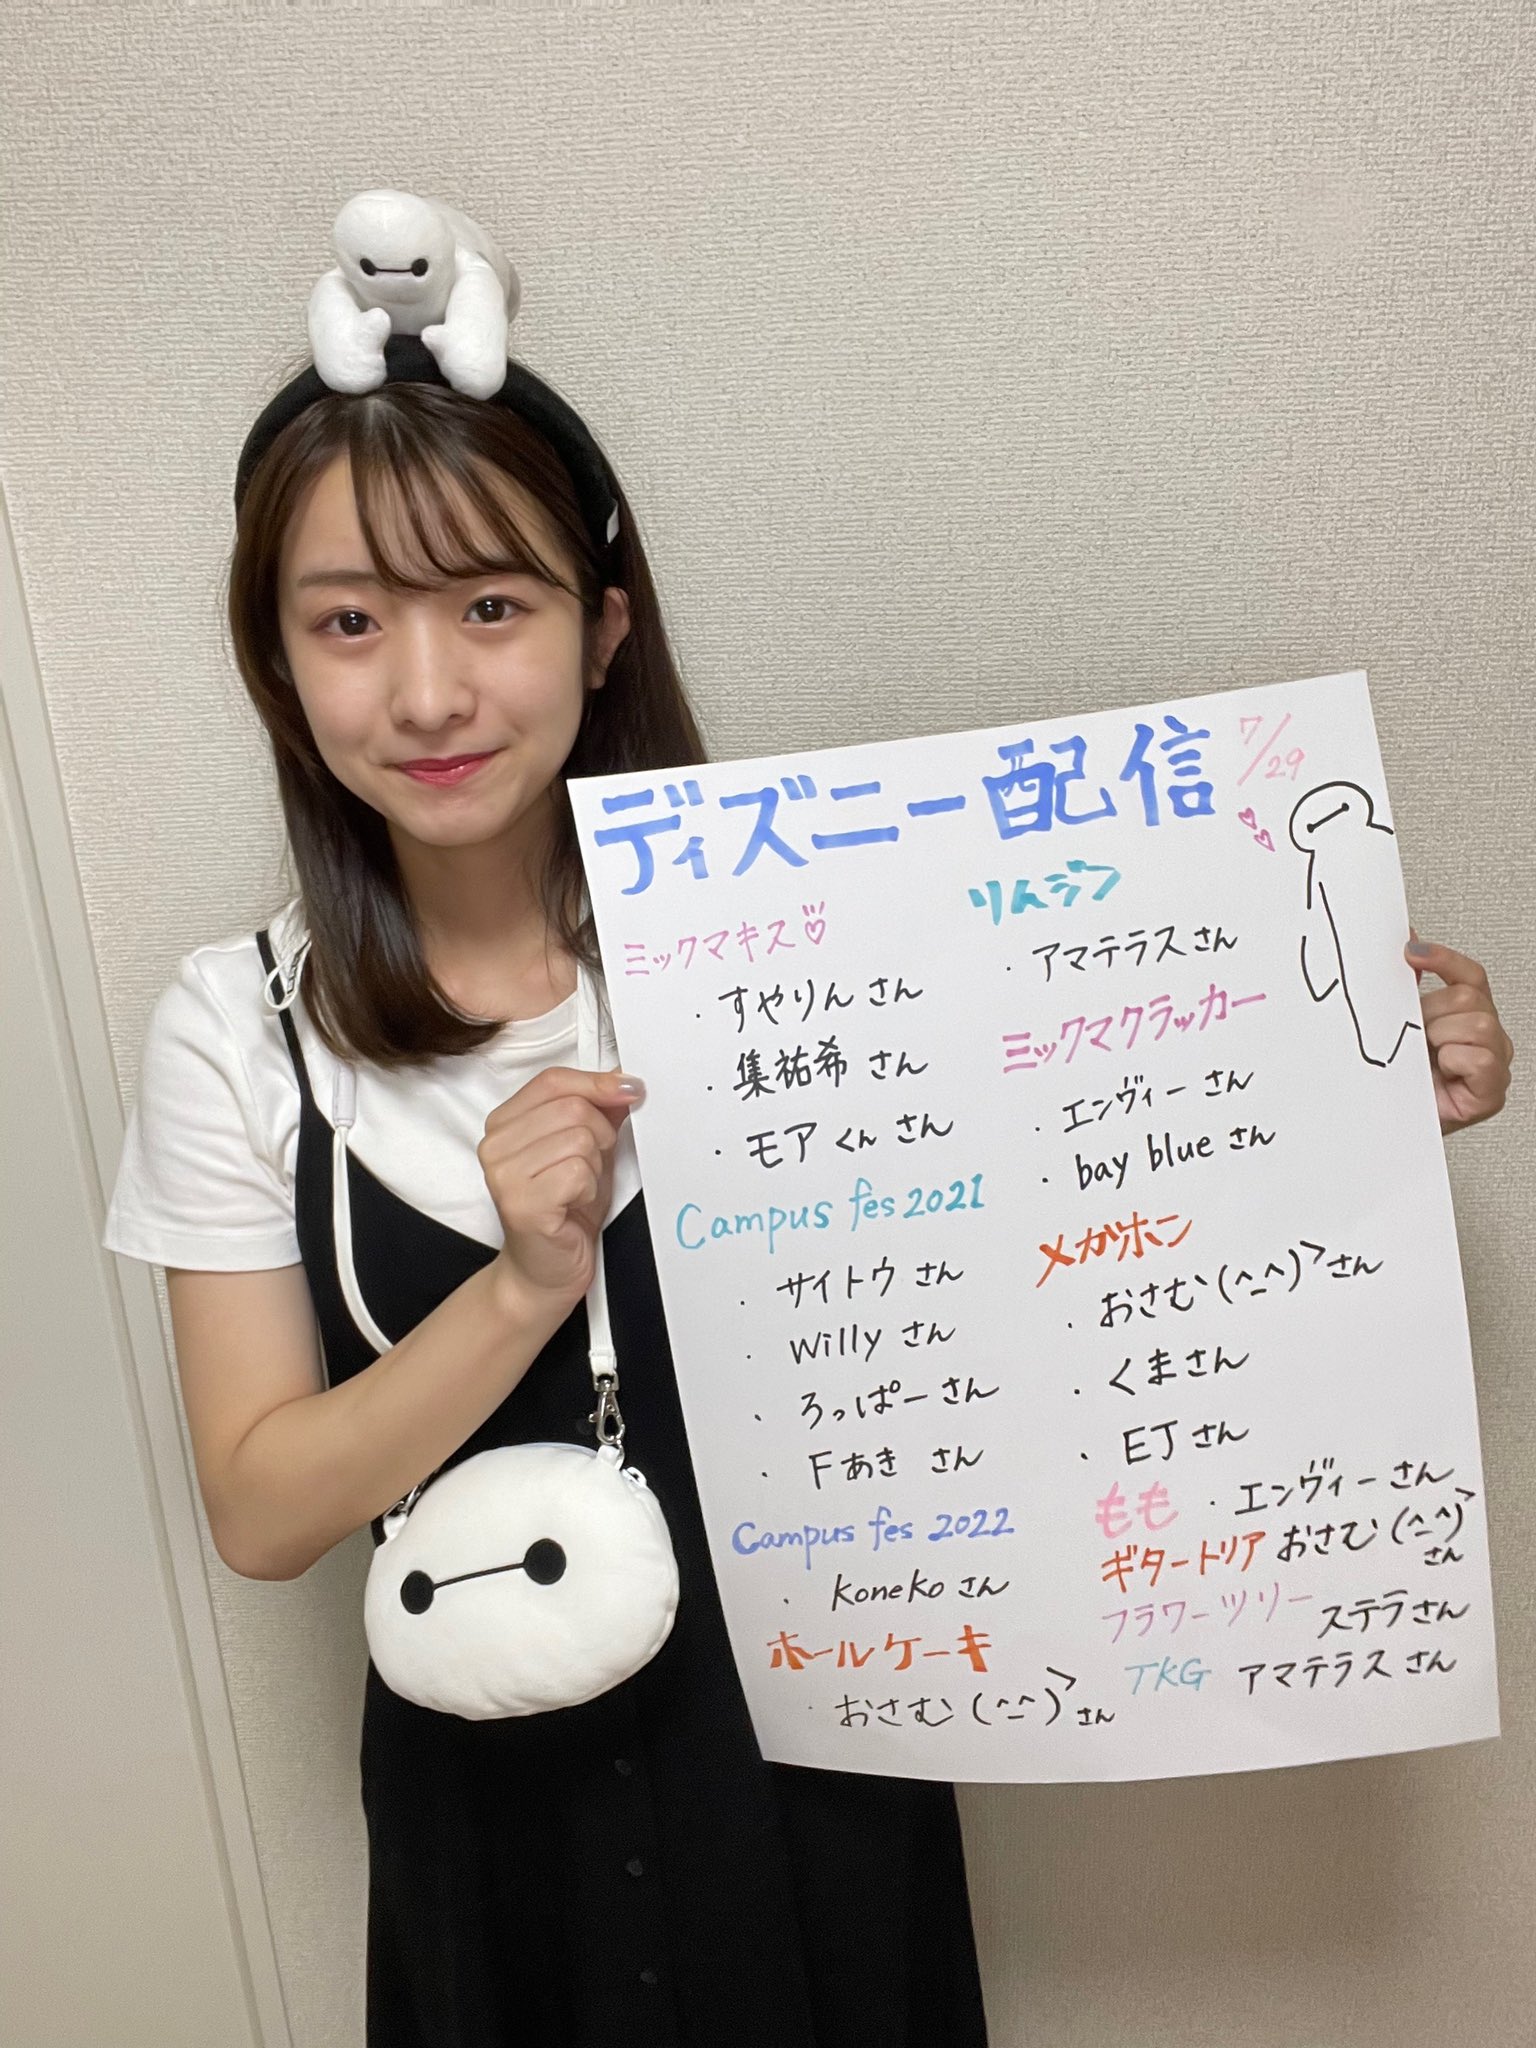 ディズニー配信 7/29
ミックマキス
・すやりんさん
・集祐希さん
・モアくんさん
Campus fes 2021
・サイトウさん
・Willyさん
・ろっぱーさん
・Fあきさん
Campus fes 2022
・Konekoさん
ホールケーキ
・おさむ(^-^)>さん
りんジン
・アマテラスさん
ミックマクラッカー
・エンヴィーさん
・bay blueさん
メガホン
・おさむ(^-^)>さん
・くまさん
・EJさん
もも・エンヴィーさん
ギタートリア おさむ(^-^)>さん
フラワーツリー ステラさん
TKG アマテラスさん